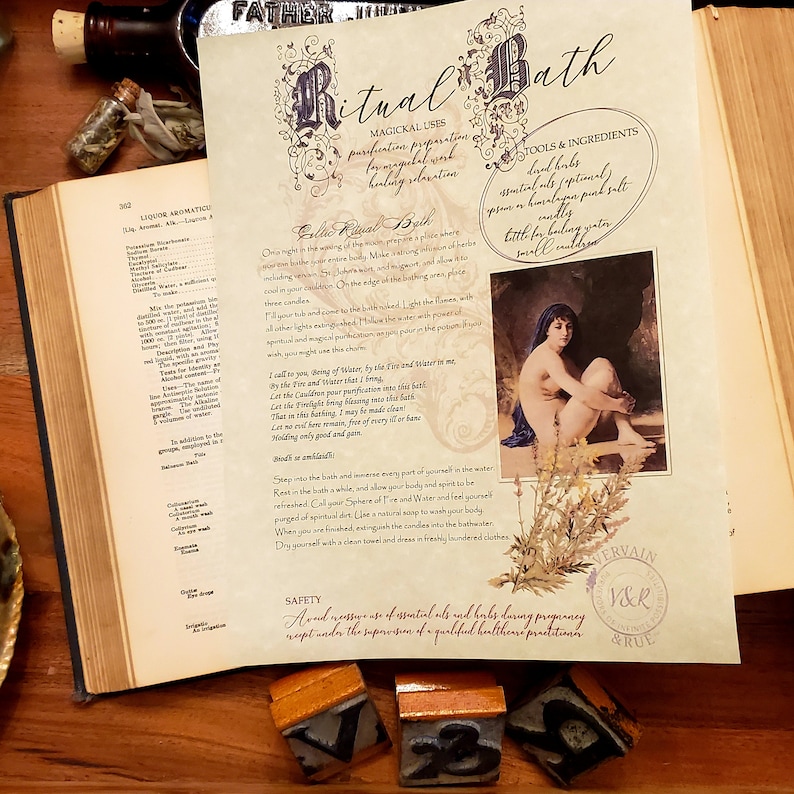 FATHER JOHN
Ritual Bath
MAGICKAL USES
purification preparation
for magickal work
healing relaxation
TOOLS & INGREDIENTS
dired herbs
essential oils (optional)
epsom or himalayan pink salt
candles
kettle for boiling water
small cauldron
Celtic Ritual Bath
On a night in the waxing of the moon, prepare a place where
you can bathe your entire body. Make a strong infusion of herbs
including vervain, St. John's wort, and mugwort, and allow it to
cool in your cauldron. On the edge of the bathing area, place
three candles.
Fill your tub and come to the bath naked. Light the flames, with
all other lights extinguished. Hallow the water with power of
spiritual and magical purification, as you pour in the potion. If you
wish, you might use this charm:
I call to you, Being of Water, by the Fire and Water in me,
By the Fire and Water that I bring,
Let the Cauldron pour purification into this bath.
Let the Firelight bring blessing into this bath.
That in this bathing, I may be made clean!
Let no evil here remain, free of every ill or bane
Holding only good and gain.
Biodh se amhlaidh!
Step into the bath and immerse every part of yourself in the water.
Rest in the bath a while, and allow your body and spirit to be
refreshed. Call your Sphere of Fire and Water and feel yourself
purged of spiritual dirt. Use a natural soap to wash your body.
When you are finished, extinguish the candles into the bathwater.
Dry yourself with a clean towel and dress in freshly laundered clothes.
SAFETY
Avoid excessive use of essential oils and herbs during pregnancy
except under the supervision of a qualified healthcare practitioner
VERVAIN
V&R
&RUE
362
LIQUOR AROMATICU
[Liq. Aromat. Alk.—Liquor A
Potassium Bicarbonate
Sodium Borate
Thymol
Eucalyptol
Methyl Salicylate
Tincture of Cudbear
Alcohol
Glycerin
Distilled Water, a sufficient q
To make
Mix the potassium bi
distilled water, and add th
to 500 cc. [1 pint] of distilled
tincture of cudbear in the al
with constant agitation;
1000 cc. [2 pints]. Allow
hours; then filter, using 10
Description and Phy
red liquid, with an aroma
The specific gravity
Tests for Identity an
Alcohol content—F
Uses—The name of
line Antiseptic Solution
branes. The Alkaline
gargle. Use undiluted
5 volumes of water.
In addition to the
groups, employed in
Title
Balneum Bath
Collunarium
A nasal wash
Collutorium
A mouth wash
Collyrium
An eye wash
Enemata
Enema
Guttæ
Eye drops
Irrigatio
An irrigation
of
V
&
R